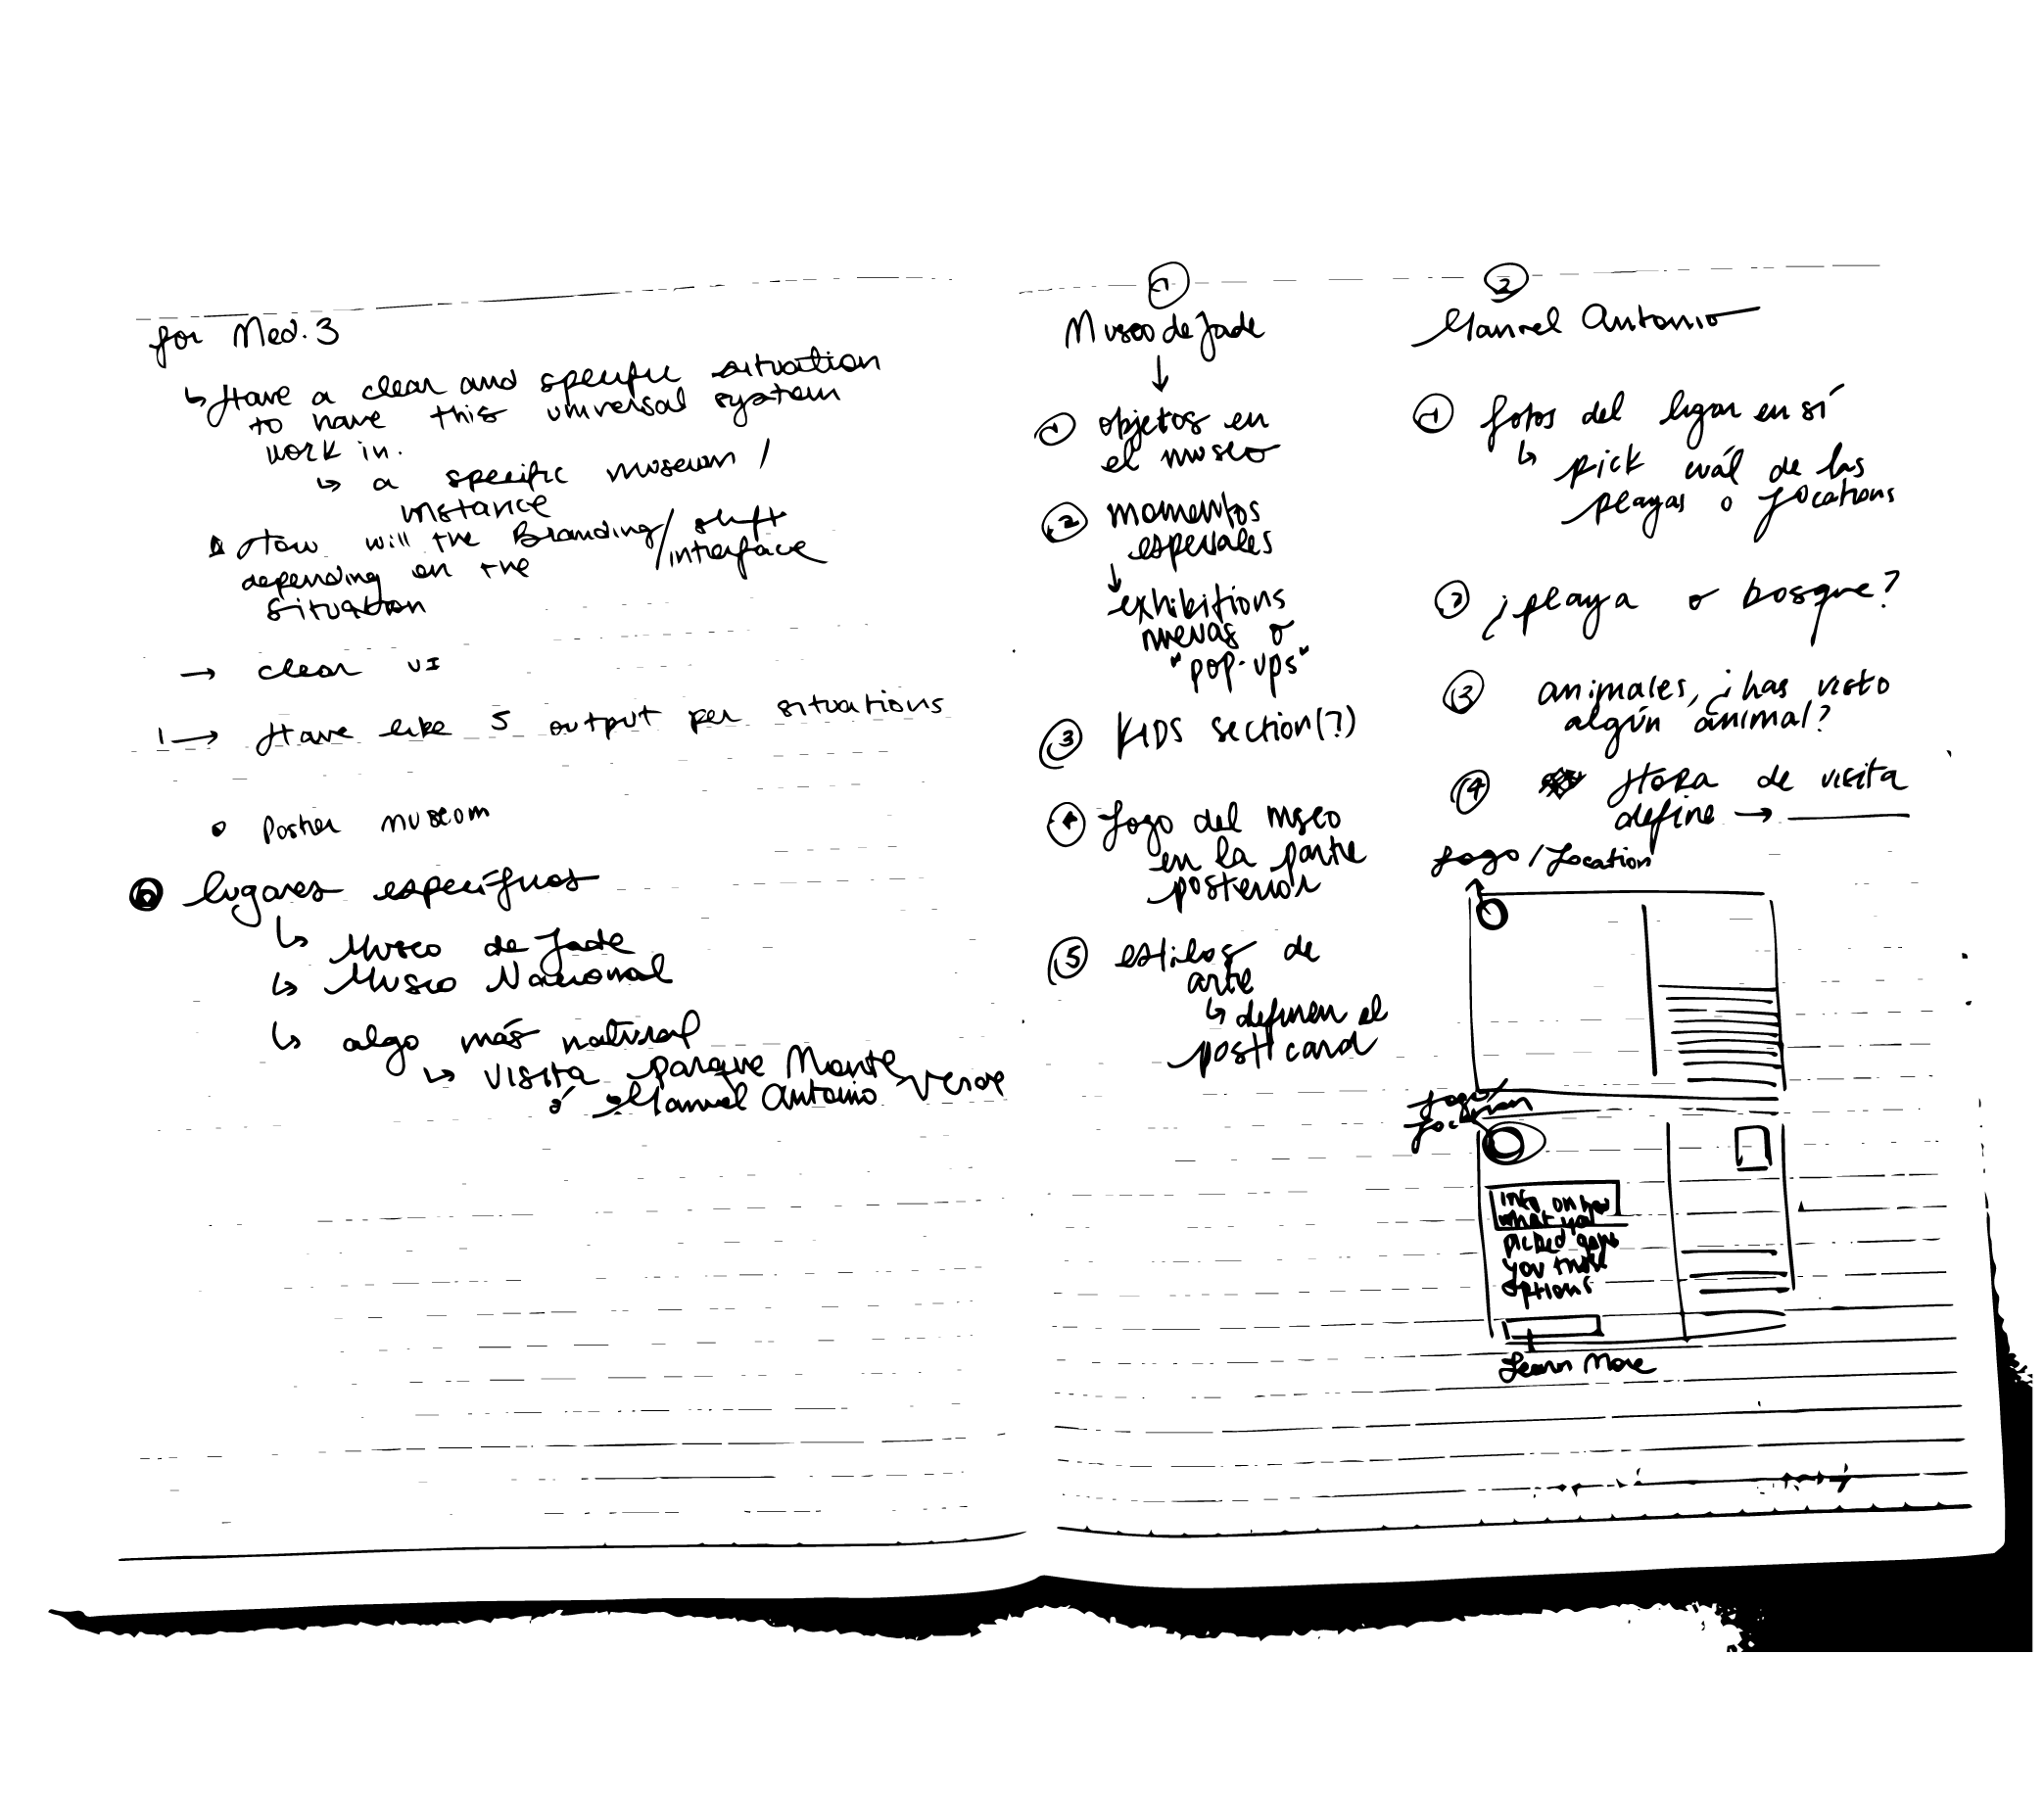 for Med. 3
↳ Have a clear and specific situation
to have this universal system
work in.
↳ a specific museum /
instance
How will the Branding / shift
interface
depending on the
situation
→ clear UI
→ Have like 5 output per situations
• Poster museom
lugares específicos
↳ Museo de Jade
↳ Museo Nacional
↳ algo más natural
↳ visita parque Monte Verde
ó Manuel Antonio
1
Museo de Jade
↓
1 objetos en
el museo
2 momentos
espesiales
↓
exhibitions
nuevas o
"pop-ups"
3 KIDS section(?)
4 Logo del mseo
en la parte
posterior
5 estilos de
arte
↳ definen el
post card
2
Manuel Antonio
1 fotos del lugar en sí
↳ pick cuál de las
playas o locations
2 ¿playa o bosque?
3 animales, ¿has visto
algún animal?
4 Hora de visita
define →
Logo / Location
Logo/
Info on how
what you
picked gave
you these
options
Learn More